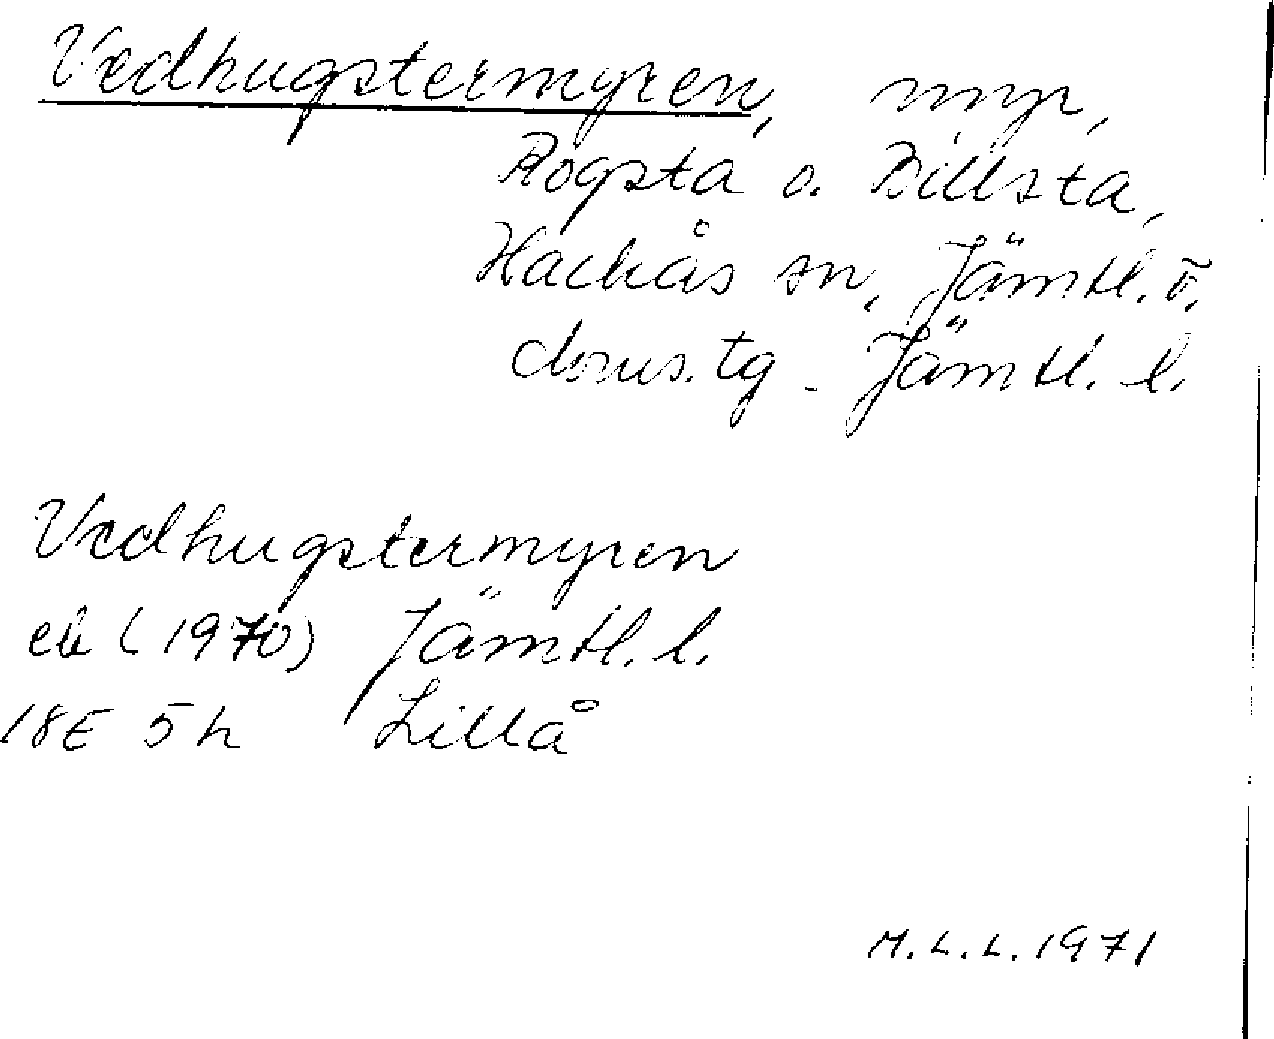 Vedhugstermyren, myr,
Rogsta o. Billsta,
Hackås sn, Jämtl. ö.
doms.tg. Jämtl. l.
Vedhugstermyren
ek (1970) Jämtl. l.
18E 5h Lillå
M.L.L. 1971